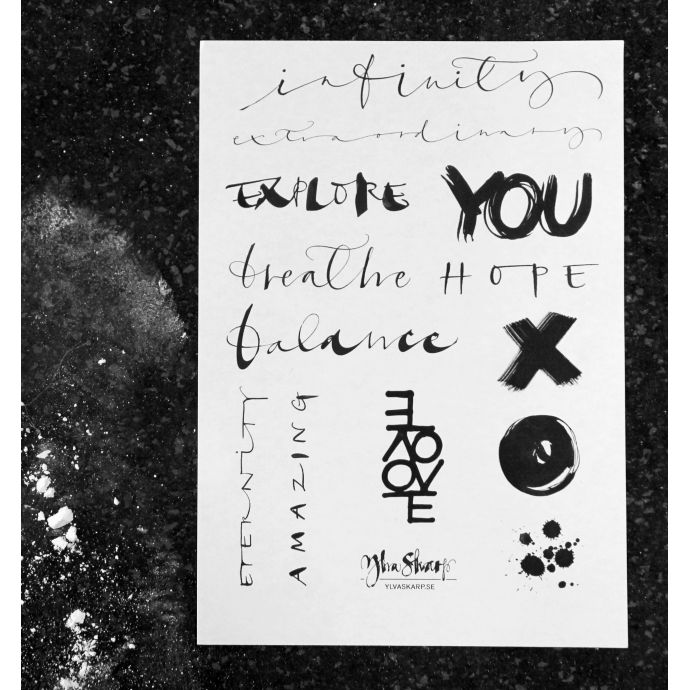 infinity
extraordinary
EXPLORE
YOU
breathe
HOPE
balance
X
O
ETERNITY
AMAZING
LOVE
Ylva Skarp
YLVASKARP.SE